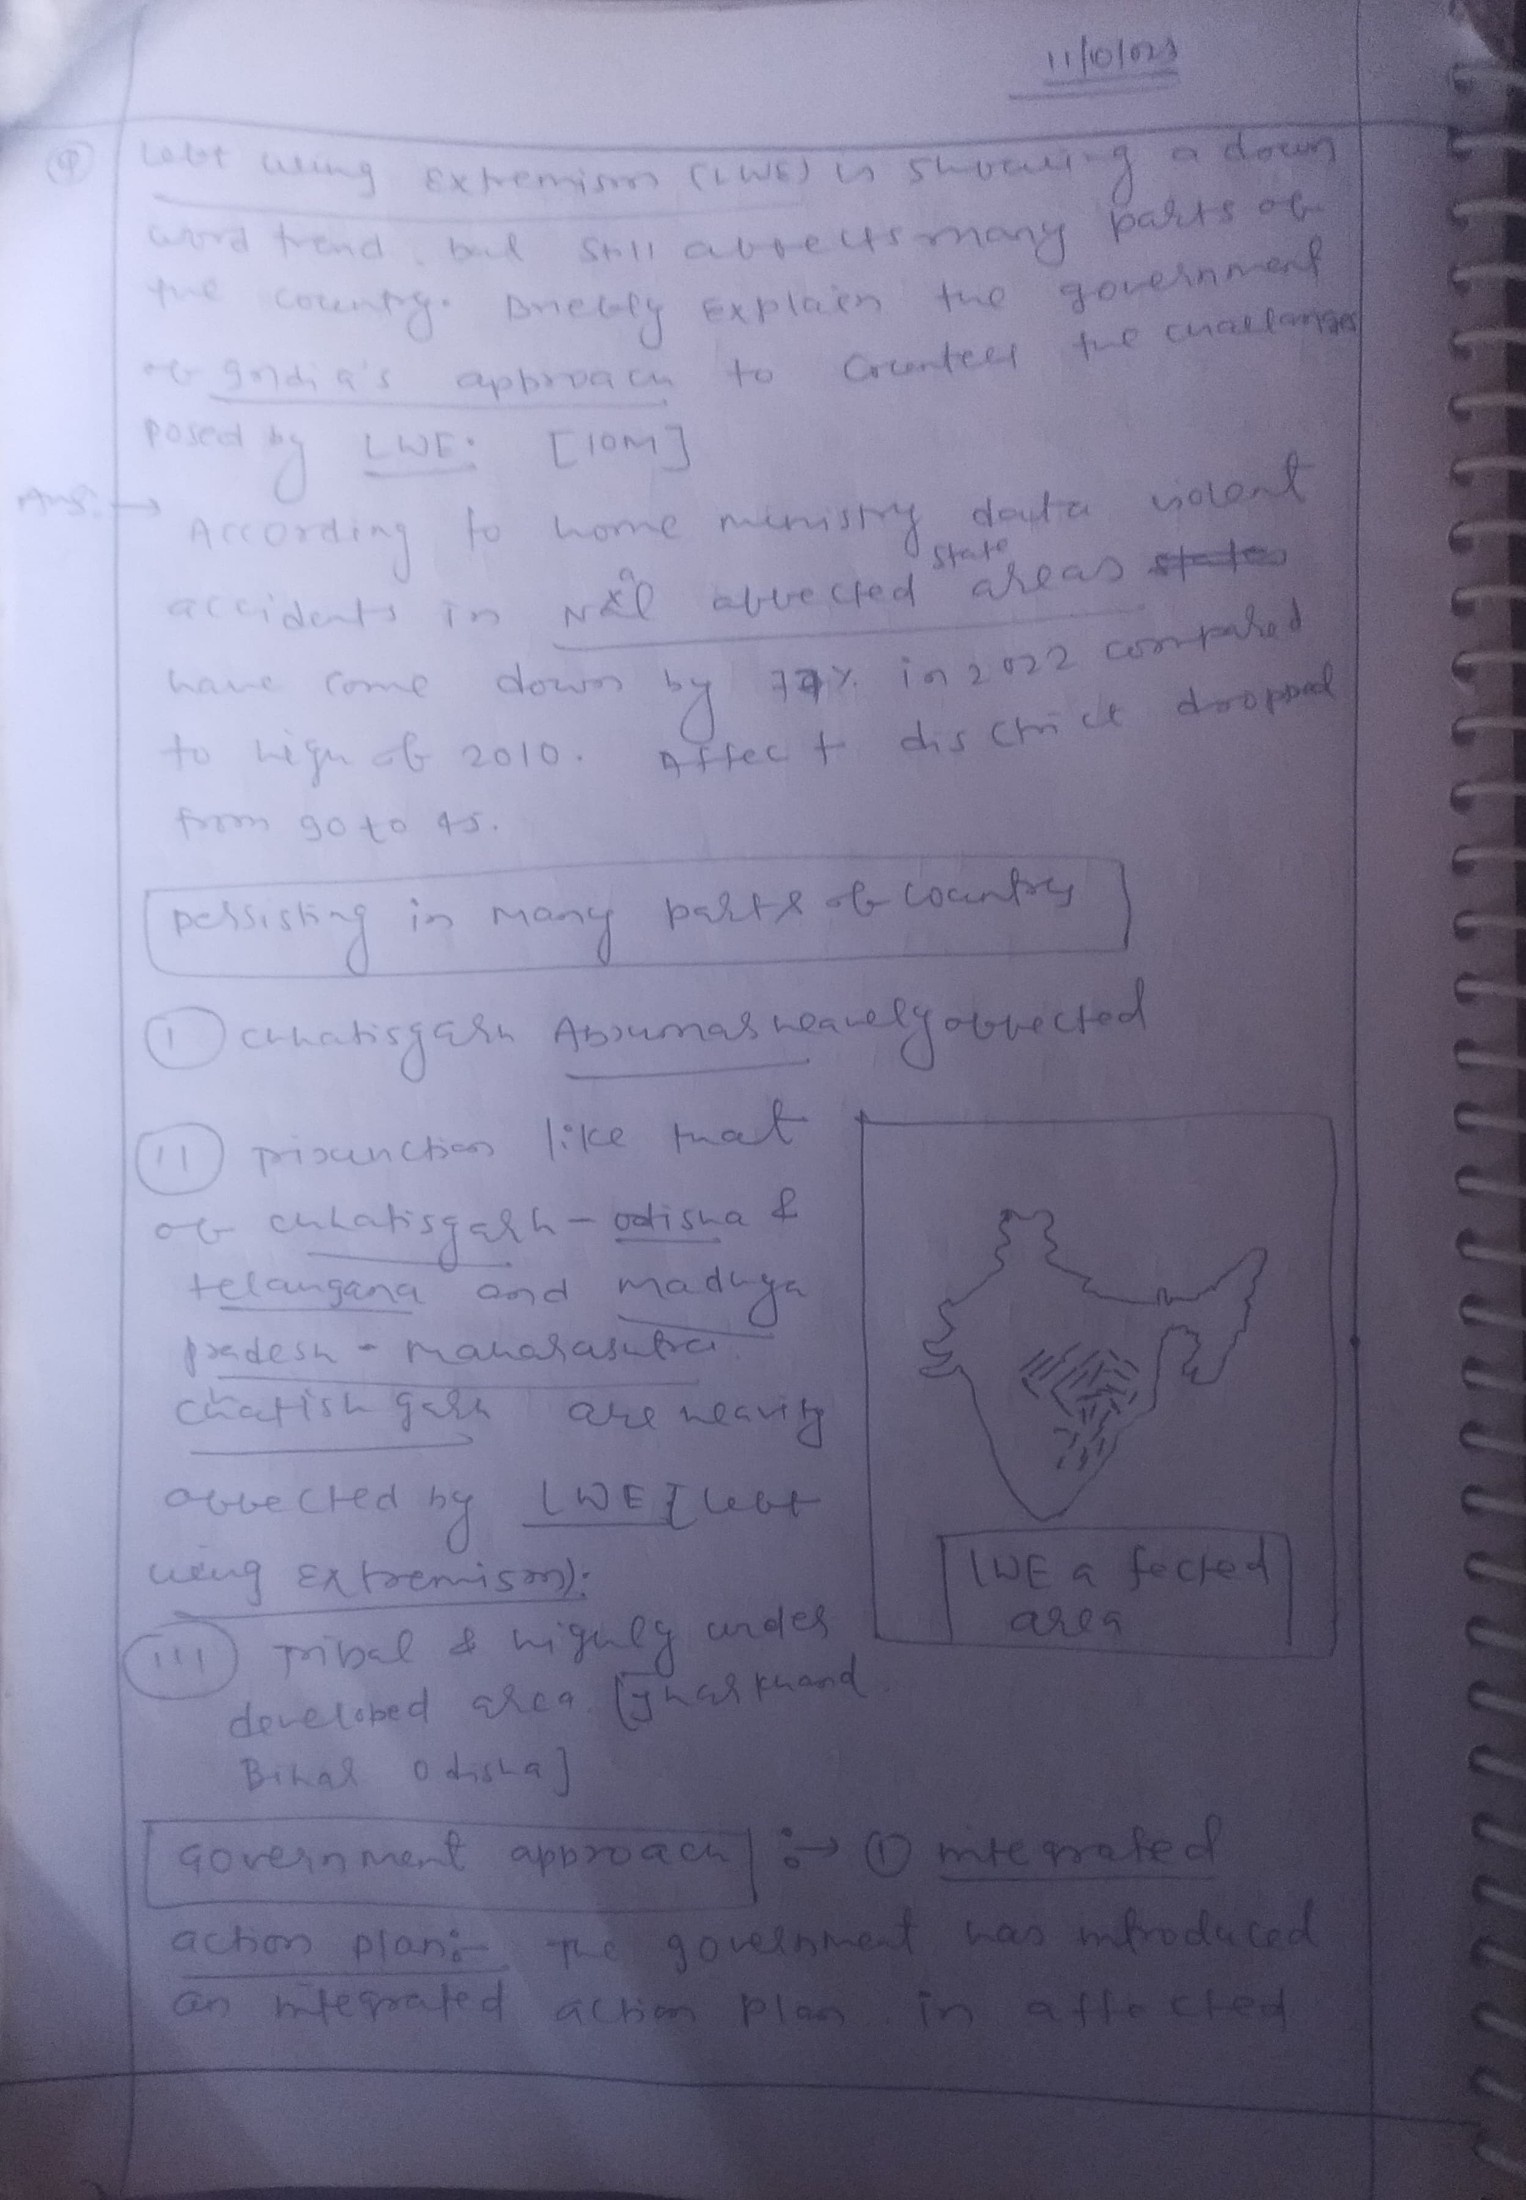 11/10/023
Q Left wing Extremism (LWE) is showing a down
word trend, but still affects many parts of
the country. Briefly Explain the government
of India's approach to Counter the challanges
posed by LWE: [10M]
Ans:→ According to home ministry data violent
accidents in Naxl affected state areas
have come down by 77% in 2022 compared
to high of 2010. Affect district dropped
from 90 to 45.
persisting in many parts of Country
I chhatisgarh heavely affected
II like that
of chhatisgarh - odisha &
telangana and madhya
pradesh - maharashtra
chatishgarh are heavity
affected by LWE [left
wing Extremism):
III Tribal & highly under
developed area. [Jharkhand
Bihar Odisha]
LWE affected
area
Government approach :→ ① integrated
action plan:- The government has introduced
an integrated action plan in affected